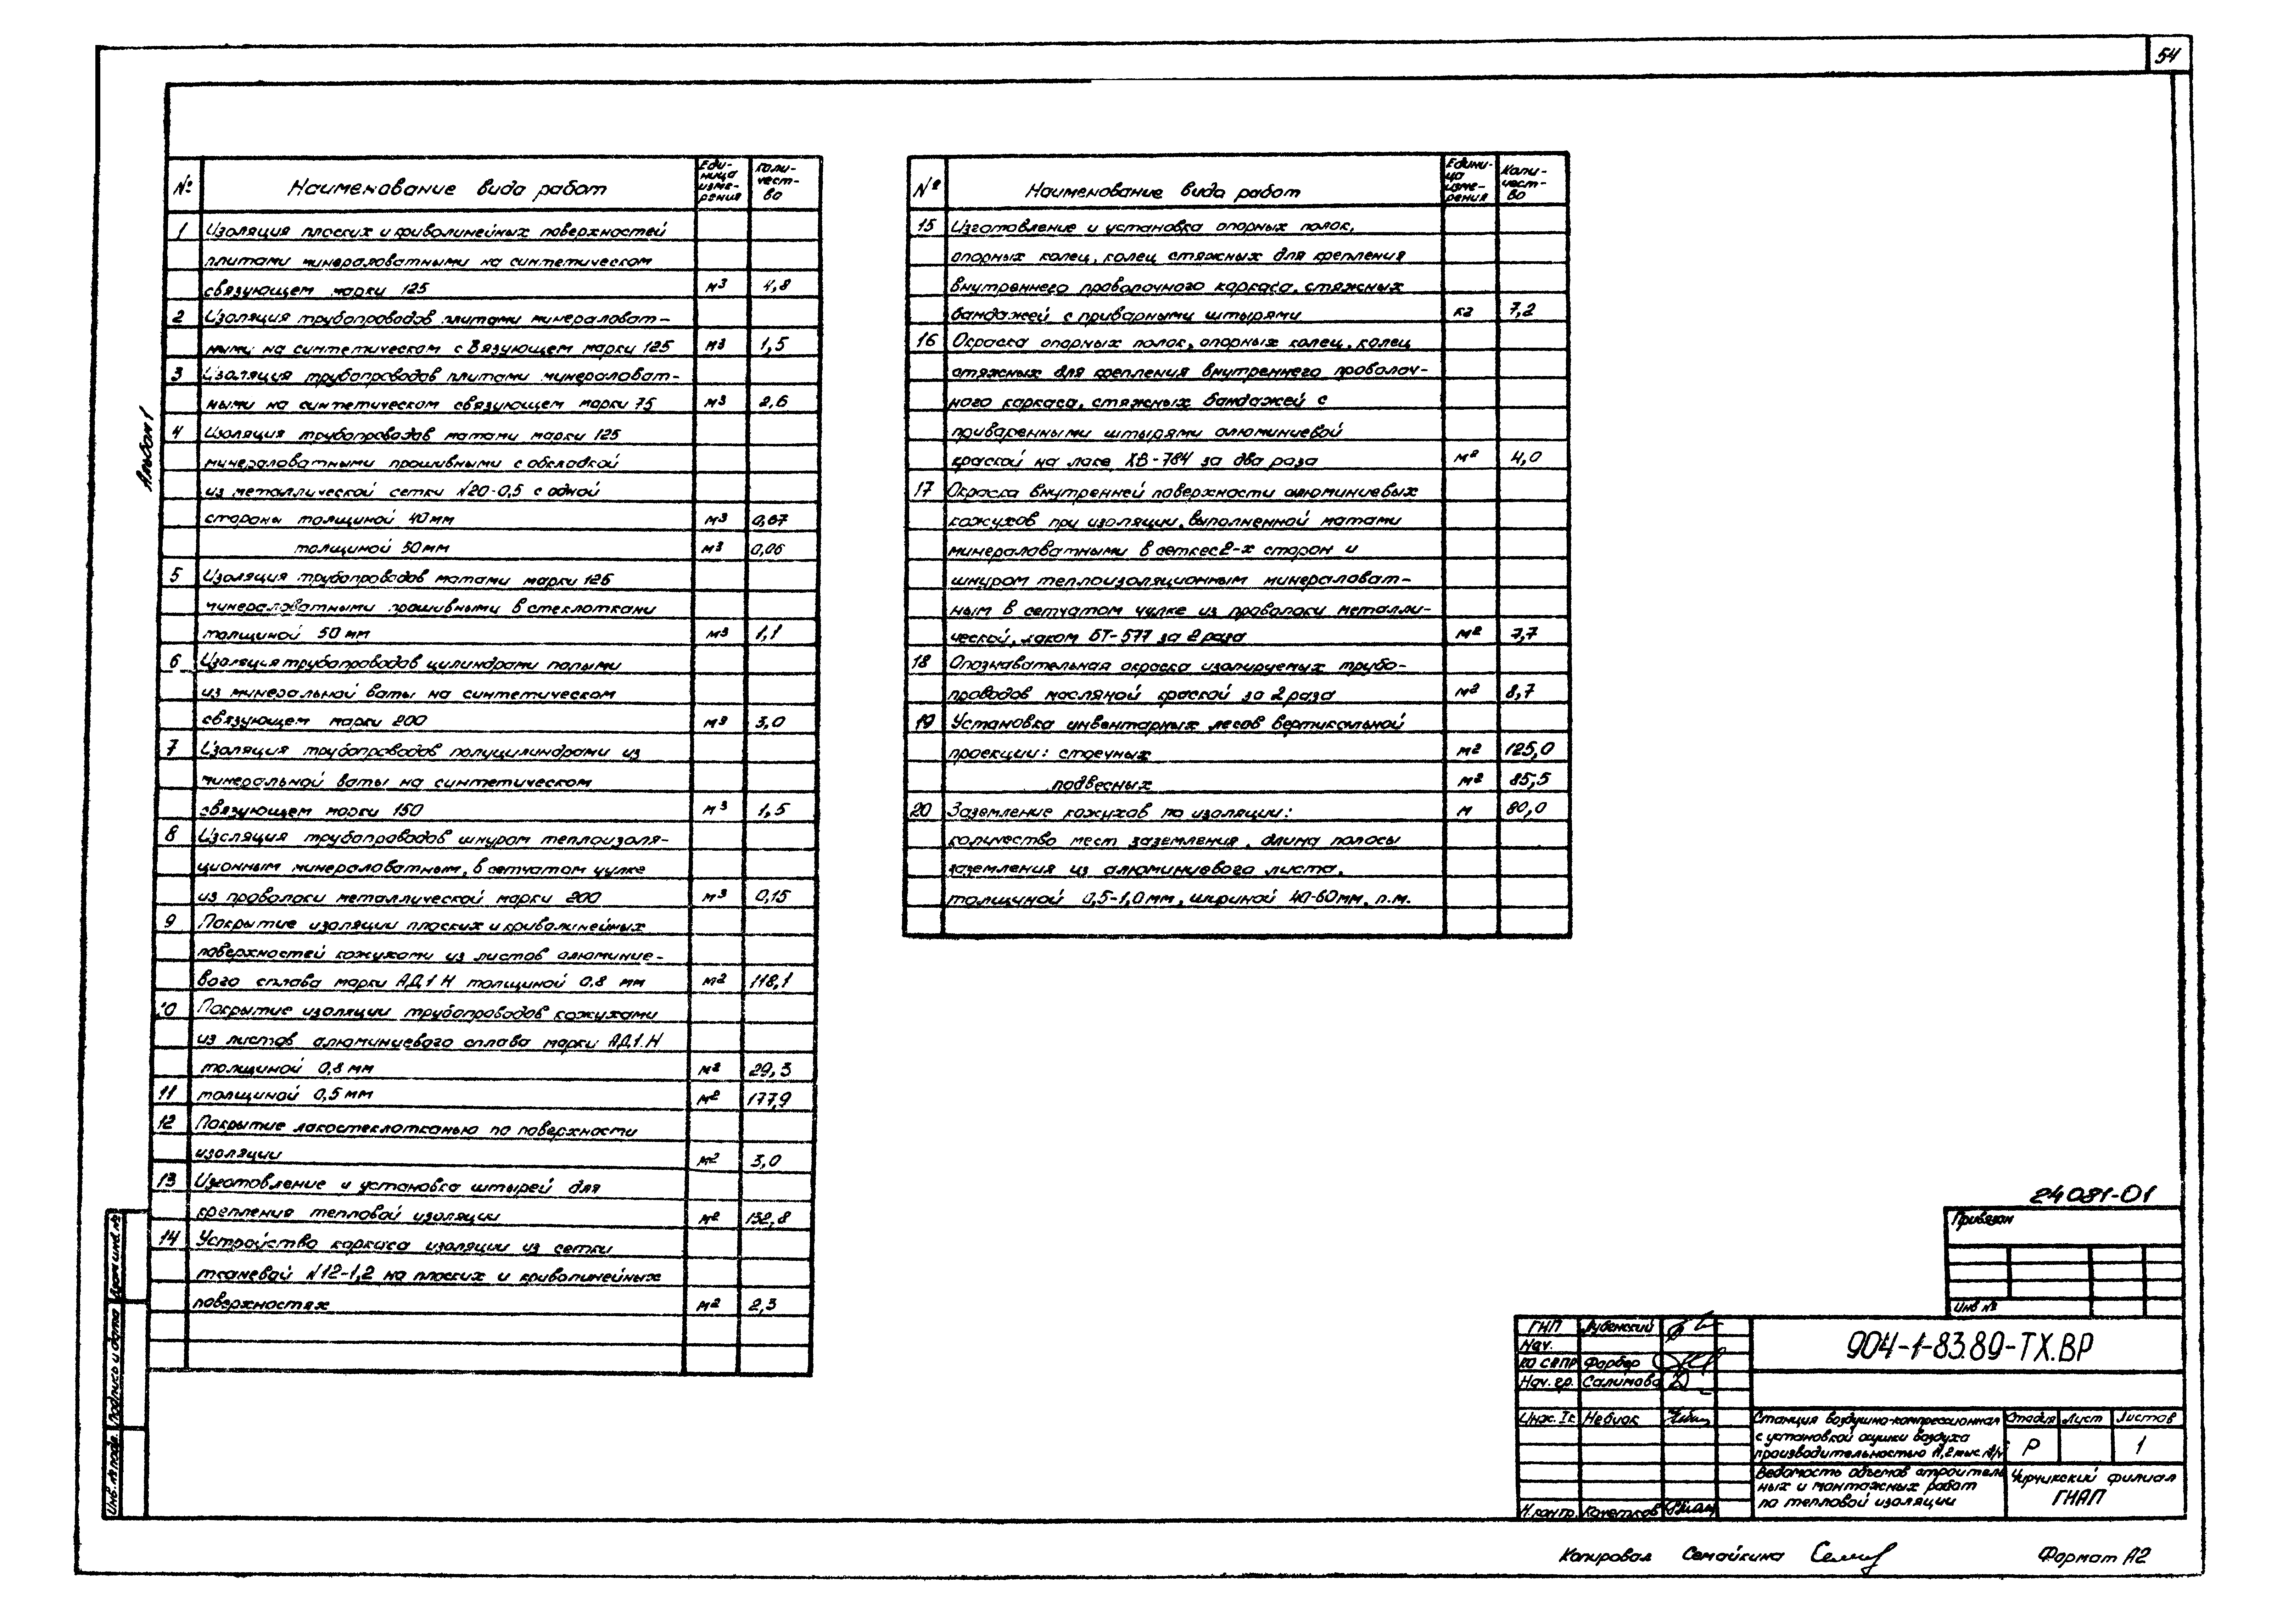 54
Альбом 1
№ Наименование вида работ Еди-ница изме-рения Коли-чест-во
1 Изоляция плоских и криволинейных поверхностей
плитами минераловатными на синтетическом
связующем марки 125 м3 4,8
2 Изоляция трубопроводов плитами минераловат-
ными на синтетическом связующем марки 125 м3 1,5
3 Изоляция трубопроводов плитами минераловат-
ными на синтетическом связующем марки 75 м3 2,6
4 Изоляция трубопроводов матами марки 125
минераловатными прошивными с обкладкой
из металлической сетки №20-0,5 с одной
стороны толщиной 40мм м3 0,67
толщиной 50мм м3 0,06
5 Изоляция трубопроводов матами марки 125
минераловатными прошивными в стеклоткани
толщиной 50 мм м3 1,1
6 Изоляция трубопроводов цилиндрами полыми
из минеральной ваты на синтетическом
связующем марки 200 м3 3,0
7 Изоляция трубопроводов полуцилиндрами из
минеральной ваты на синтетическом
связующем марки 150 м3 1,5
8 Изоляция трубопроводов шнуром теплоизоля-
ционным минераловатным, в сетчатом чулке
из проволоки металлической марки 200 м3 0,15
9 Покрытие изоляции плоских и криволинейных
поверхностей кожухами из листов алюминие-
вого сплава марки АД1Н толщиной 0,8 мм м2 118,1
10 Покрытие изоляции трубопроводов кожухами
из листов алюминиевого сплава марки АД1.Н
толщиной 0,8 мм м2 29,3
11 толщиной 0,5 мм м2 177,9
12 Покрытие лакостеклотканью по поверхности
изоляции м2 3,0
13 Изготовление и установка штырей для
крепления тепловой изоляции м2 152,8
14 Устройство каркаса изоляции из сетки
тканевой №12-1,2 на плоских и криволинейных
поверхностях м2 2,3
№ Наименование вида работ Едини-ца изме-рения Коли-чест-во
15 Изготовление и установка опорных полок,
опорных колец, колец стяжных для крепления
внутреннего проволочного каркаса, стяжных
бандажей с приварными штырями кг 7,2
16 Окраска опорных полок, опорных колец, колец
стяжных для крепления внутреннего проволоч-
ного каркаса, стяжных бандажей с
приваренными штырями алюминиевой
краской на лаке ХВ-784 за два раза м2 4,0
17 Окраска внутренней поверхности алюминиевых
кожухов при изоляции, выполненной матами
минераловатными в сетке с 2-х сторон и
шнуром теплоизоляционным минераловат-
ным в сетчатом чулке из проволоки металли-
ческой, лаком БТ-577 за 2 раза м2 7,7
18 Опознавательная окраска изолируемых трубо-
проводов масляной краской за 2 раза м2 8,7
19 Установка инвентарных лесов вертикальной
проекции: стоечных м2 125,0
подвесных м2 85,5
20 Заземление кожухов по изоляции: м 80,0
количество мест заземления, длина полосы
заземления из алюминиевого листа,
толщиной 0,5-1,0мм, шириной 40-60мм, п.м.
24081-01
Привязан
Инв №
ГНП Лубенский
Нач.
КО САПР Фарбер
Нач. гр. Салимова
Инж. Iк. Небиок
Н.контр. Кочетков
904-1-83.89-ТХ.ВР
Станция воздушно-компрессионная
с установкой осушки воздуха
производительностью
Стадия Лист Листов
Р 1
Ведомость объемов строитель
ных и монтажных работ
по тепловой изоляции
Чирчикский филиал
ГИАП
Взам инв. №
Подпись и дата
Инв. № подл.
Копировал Семайкина
Формат А2